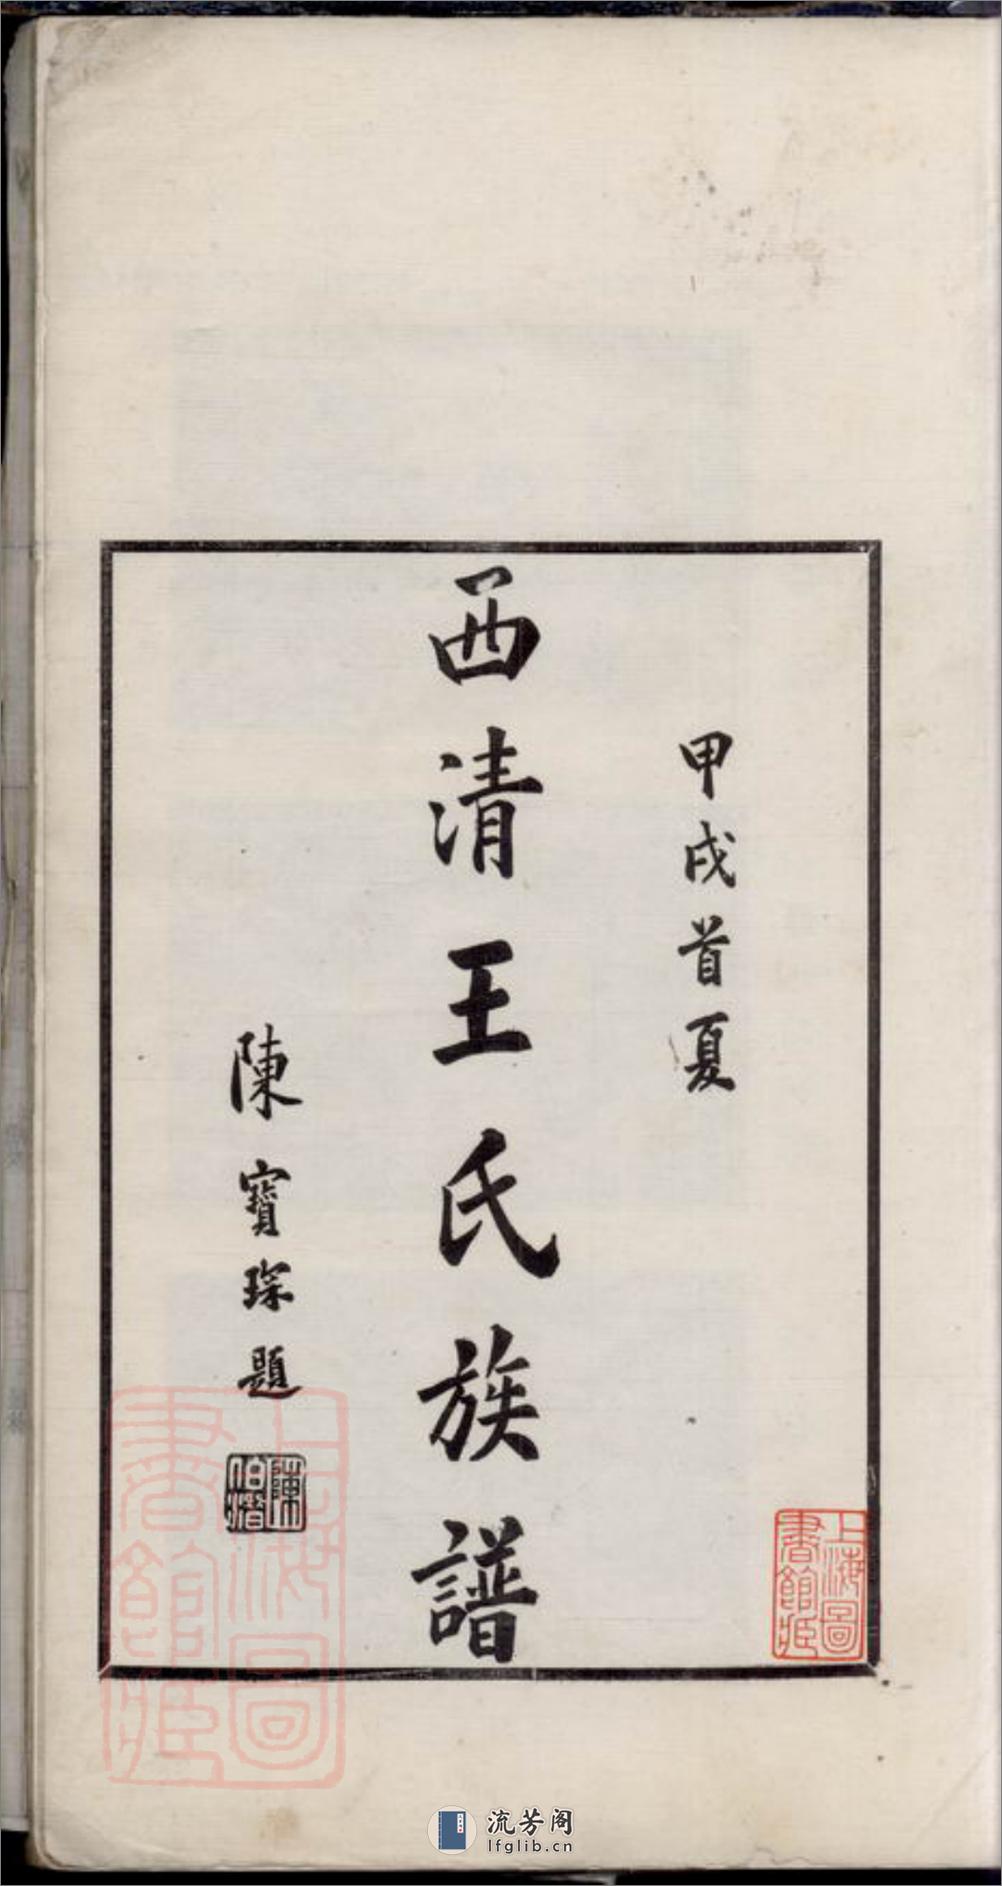 甲戌首夏
西清王氏族譜
陳寶琛題
陳伯潛
上海圖書館藏
上海圖書館藏
流芳阁
lfglib.cn